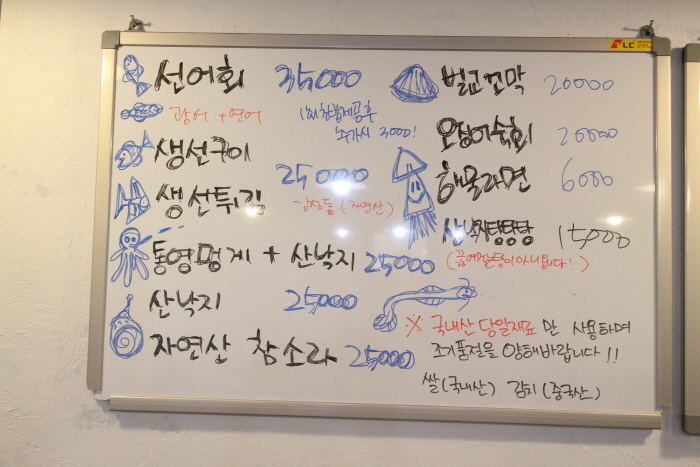 LC
선어회 35,000
광어 + 연어
1회 초밥제공후
추가시 3000!
생선구이
생선튀김 25000
감성돔 (자연산)
통영멍게 + 산낙지 25000
산낙지 25000
자연산 참소라 25000
벌교꼬막 20000
오징어숙회 20000
해물라면 6000
산낙지탕탕탕 15000
(끓여먹는탕이아닙니다!)
※ 국내산 당일재료 만 사용하며
조기품절을 양해바랍니다!!
쌀(국내산) 김치(중국산)